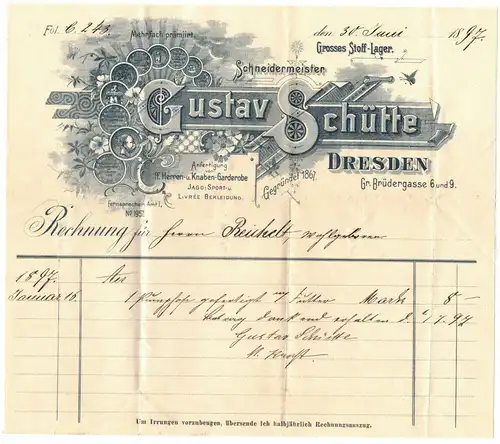 Fol. C. 243
den 30. Juni 1897.
Mehrfach prämiirt.
Grosses Stoff-Lager.
Schneidermeister
Gustav Schütte
DRESDEN
Gr. Brüdergasse 6 und 9.
Gegründet 1867.
Anfertigung
von
ff. Herren- u. Knaben-Garderobe
JAGD-, SPORT- u.
LIVRÉE BEKLEIDUNG.
Fernsprecher Amt I,
No 1957.
Rechnung für Herrn Reichelt, Wohlgeboren
1897. An
Januar 16. 1 Pumphose gefertigt Futter Mark 8 —
dankend erhalten d. 1 7 97
Gustav Schütte
Um Irrungen vorzubeugen, übersende ich halbjährlich Rechnungsauszug.